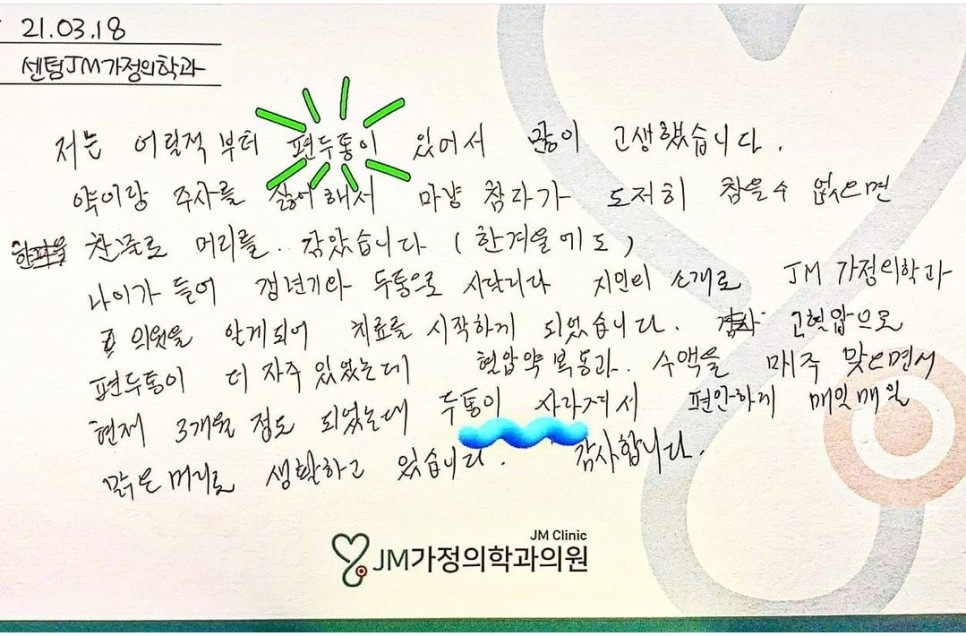 21.03.18
센텀JM가정의학과
저는 어릴적 부터 편두통이 있어서 많이 고생했습니다.
약이랑 주사를 싫어해서 마냥 참다가 도저히 참을수 없으면
찬물로 머리를. 감았습니다 (한겨울에도)
나이가 들어 갱년기와 두통으로 시달리다 지인의 소개로 JM 가정의학과
의원을 알게되어 치료를 시작하게 되었습니다. 고혈압으로
편두통이 더 자주 있었는데 혈압약 복용과. 수액을 매주 맞으면서
현재 3개월 정도 되었는데 두통이 사라져서 편안하게 매일매일
맑은 머리로 생활하고 있습니다. 감사합니다.
JM Clinic
JM가정의학과의원